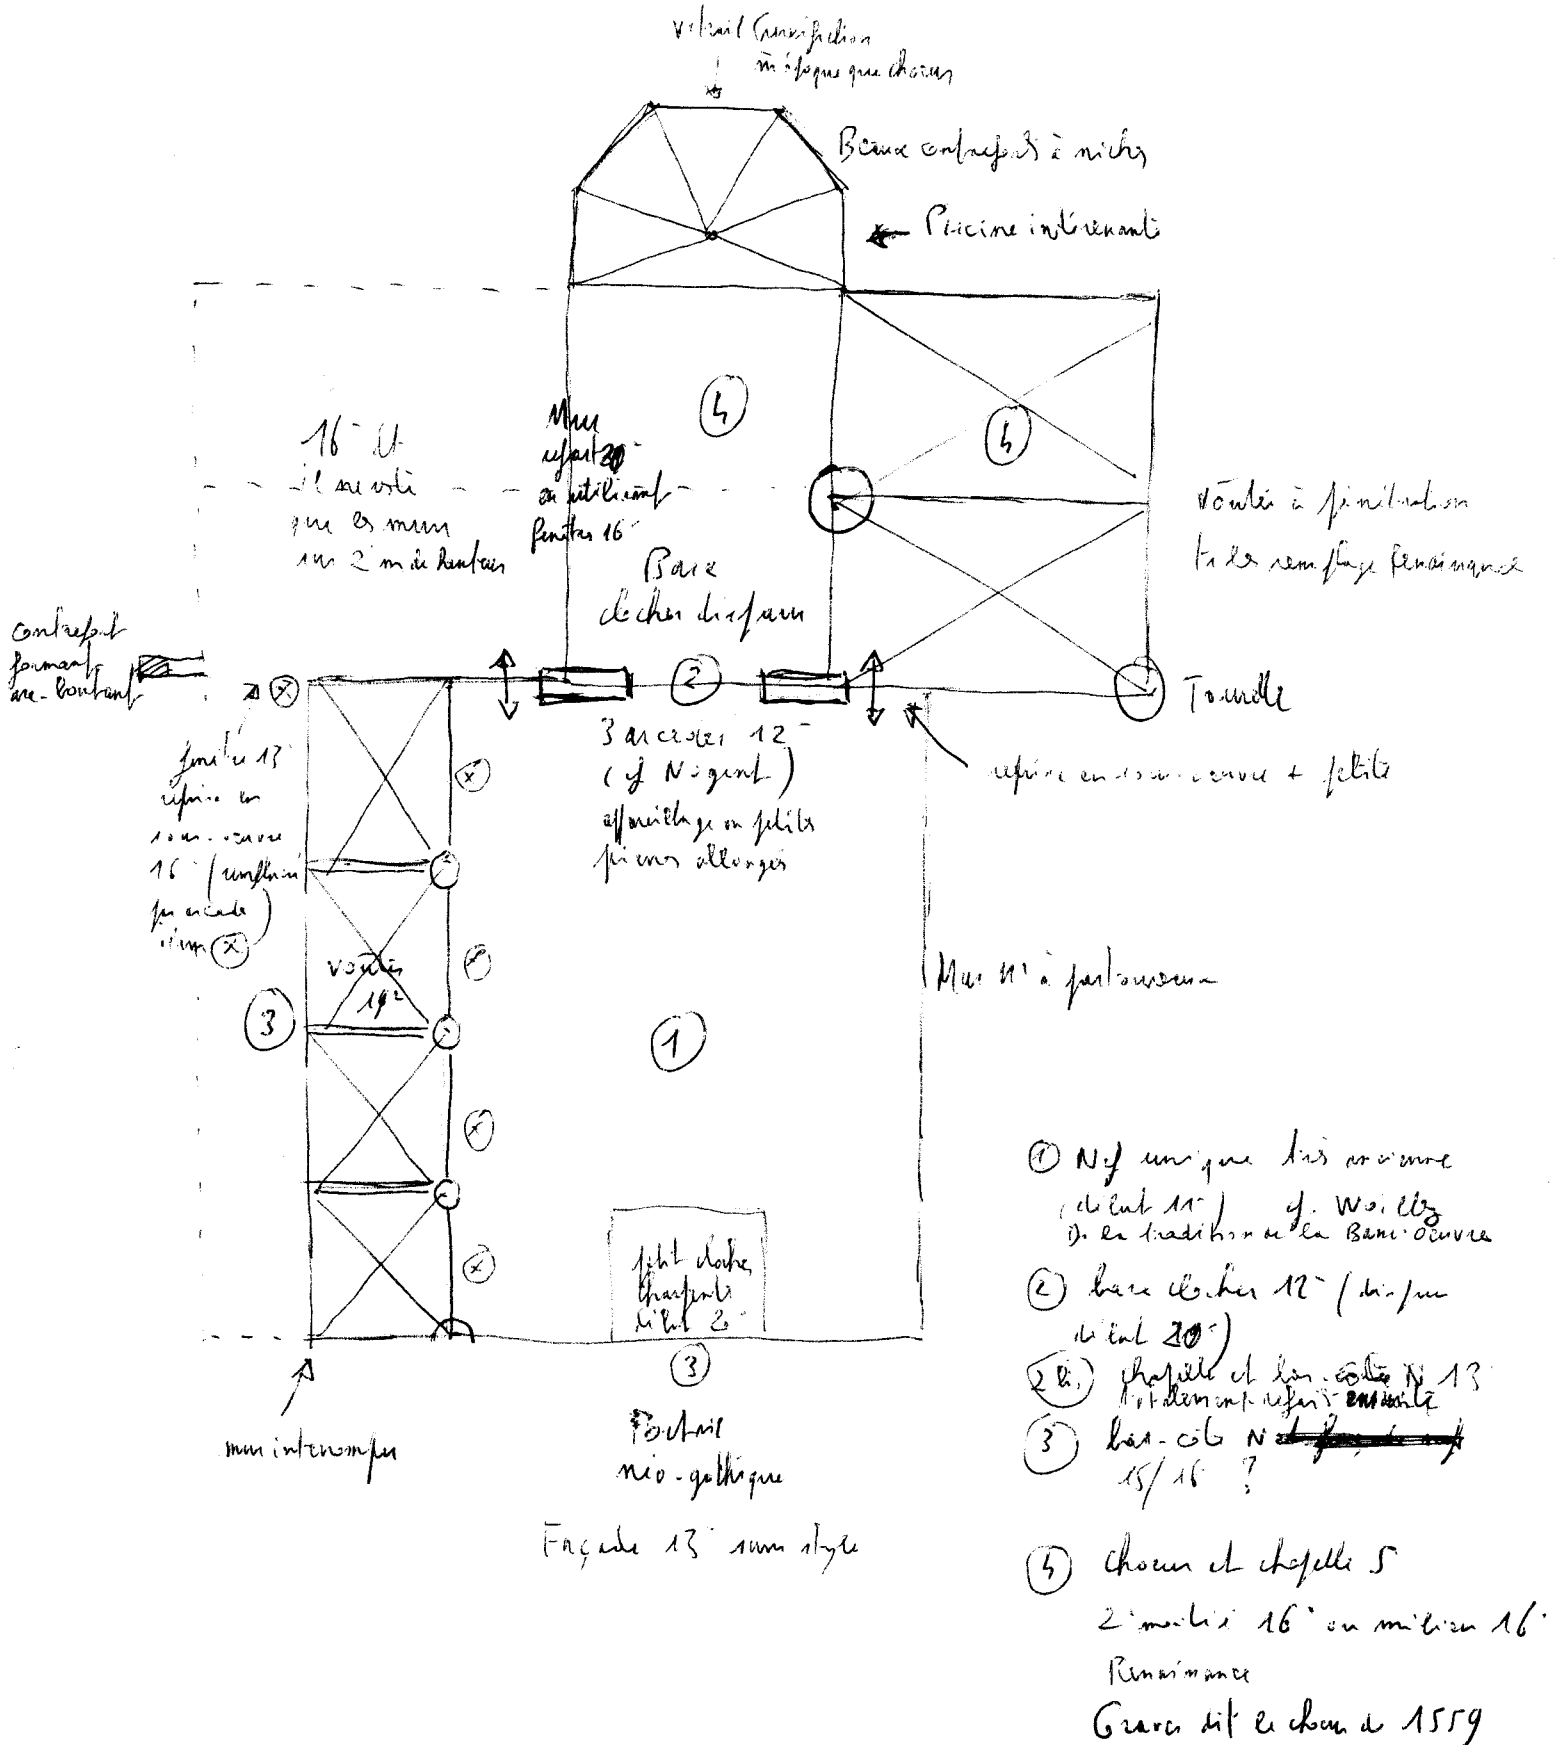 vitrail Crucifixion
m̄ époque que choeur
Beaux contreforts à niches
Piscine intéressante
4
4
16e et
il ne reste
que les murs
sur 2 m de hauteur
Mur
refait 20e
en utilisant
fenêtres 16e
Base
clocher disparu
voûtes à pénétration
remplage Renaissance
contrefort
formant
arc-boutant
x
2
Tourelle
fenêtre 13e
reprise en
sous-oeuvre
16e (remplacée
par arcade
x
3 arcades 12e
(cf Nogent)
appareillage en petites
pierres allongées
reprise en sous-oeuvre + petite
x
x
voûtes
19e
3
1
Mur 11e à pastoureaux
x
x
petit clocher
charpente
début 20e
3
mur interrompu
Portail
néo-gothique
Façade 13e sans style
1 Nef unique très ancienne
(début 11e) cf. Woillez
De la tradition de la Basse-Oeuvre
2 base clocher 12e (disparu
début 20e)
2 bis chapelle et bas-côté N 13e
totalement refait ensuite
3 bas-côté N
15/16 ?
4 choeur et chapelle S
2e moitié 16e ou milieu 16e
Renaissance
Graves dit le choeur de 1559